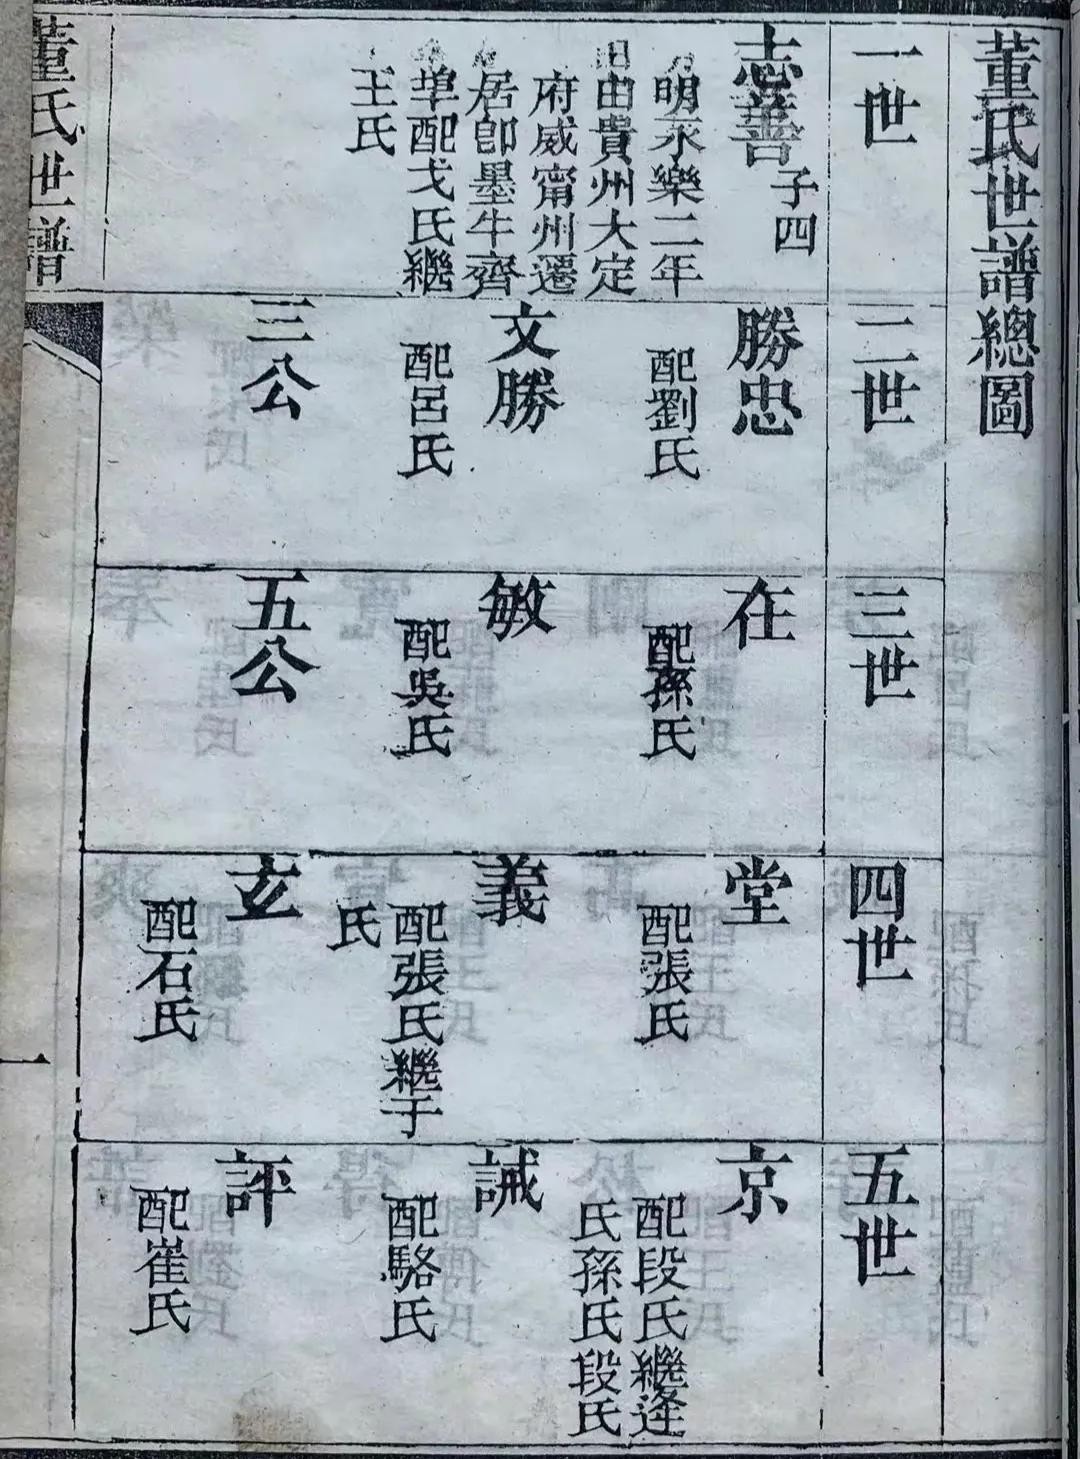 董氏世譜總圖
一世
志善
子四
明永樂二年
由貴州大定
府威甯州遷
居即墨牛齊
埠配戈氏繼
王氏
二世
勝忠
配劉氏
文勝
配呂氏
三公
三世
在
配孫氏
敏
配吳氏
五公
四世
堂
配張氏
義
配張氏繼于
氏
玄
配石氏
五世
京
配段氏繼逄
氏孫氏段氏
誡
配駱氏
評
配崔氏
董氏世譜
一